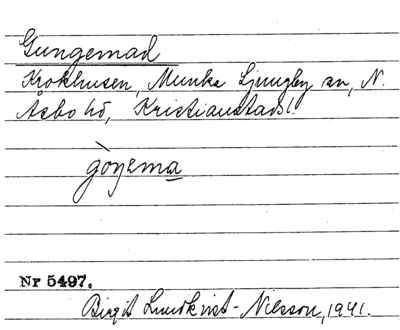 Gungemad
Krokhusen, Munka Ljungby sn, N.
Åsbo hd, Kristianstads l.
gòŋema
Nr 5497.
Birgit Lundkvist-Nilsson, 1941.